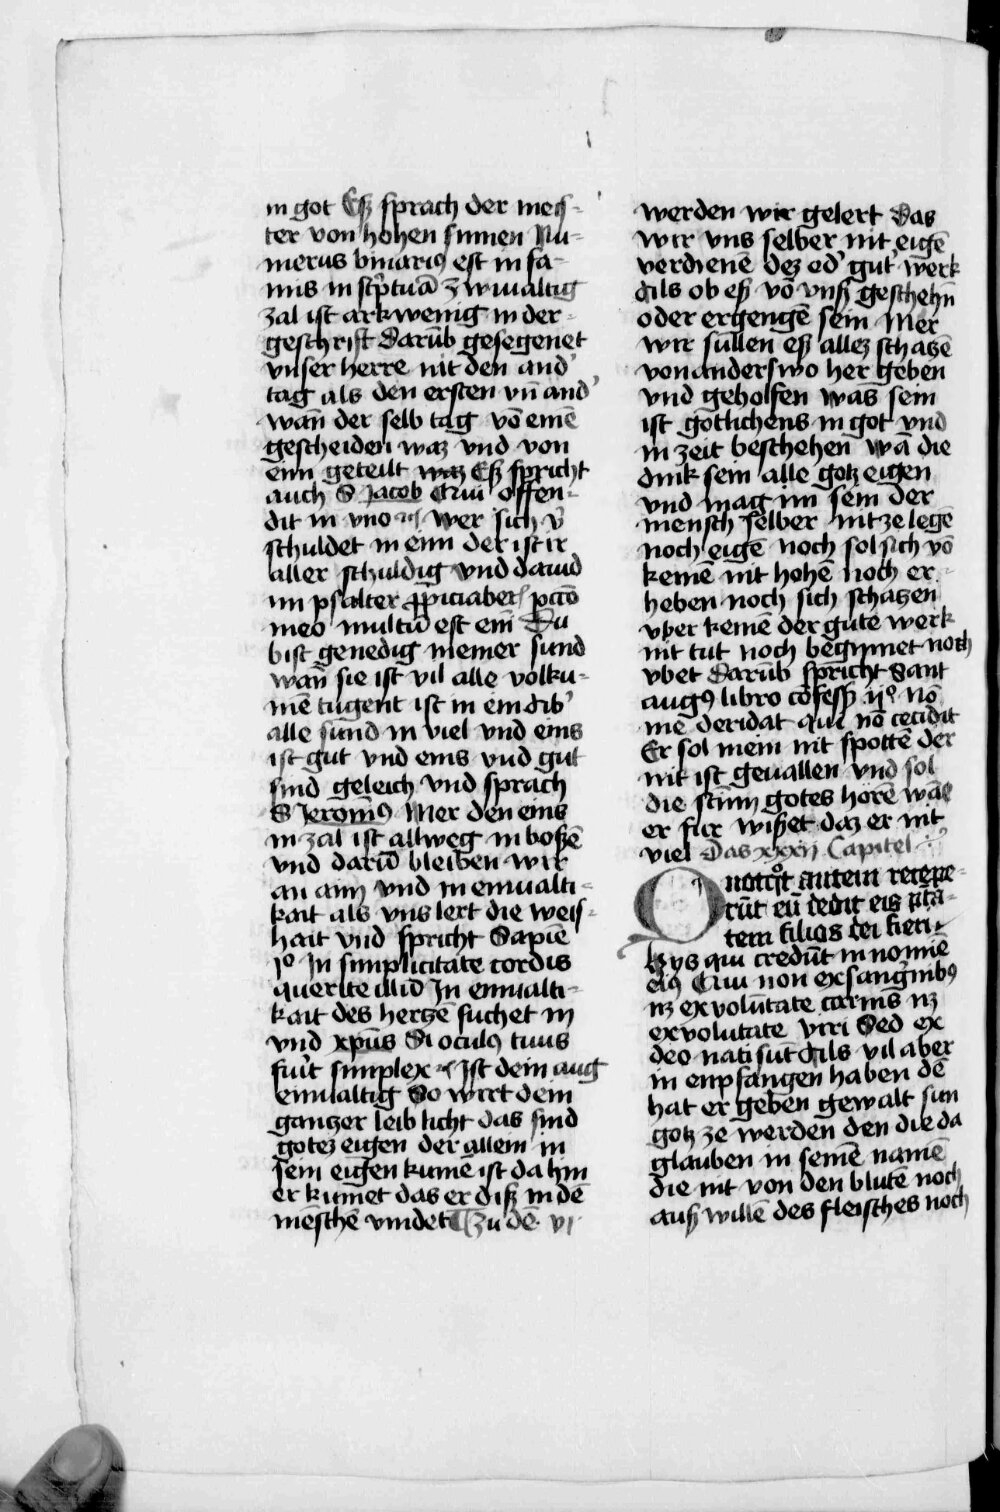 in got Eß sprach der meis-
ter von hohen sinnen Nu-
merus binariꝰ est infa-
mis in scͥptuͣa zwiualtig
zal ist ark wenig in der
geschrift Darūb gesegenet
vnser herre nit den and'
tag als den ersten vn̄ and'
wan̄ der selb tag vō einē
gescheiden waz vnd von
einn geteilt waz Eß spricht
auch S Jacob offen-
dit in vno wer sich v̄
schuldet in enn der ist ir
aller schuldig vnd dauid
im psalter ꝓpiciaber pctō
meo multū est enī Du
bist genedig meiner sund
wan̄ sie ist vil alle volku-
mē tugent ist in ein drib'
alle sund in viel vnd eins
ist gut vnd eins vnd gut
sind geleich vnd sprach
S Jeronīꝰ Mer den eins
in zal ist allweg in boßē
vnd darū bleiben wir
an aim vnd in einualti-
kait als vns lert die weis-
hait vnd spricht Sapīe
Iº In simplicitate cordis
querite illū In einualti-
kait des hertzē suchet in
vnd xp̄us Si oculꝰ tuus
fuīt simplex Ist dein aug
einualtig So wirt dein
gantzer leib licht das sind
gotez eigen der allein in
sein eigen kumē ist da hin
er kumet das er diß in dē
mēschē vindet Zu dē vi
werden wir gelert Das
wir vns selber nit eigē
verdienē dez od' gut' werk
Als ob eß vō vnß geschehn
oder ergengē sein Mer
wir sullen eß allez schatzē
von anderswo her geben
vnd geholfen was sein
ist gotlichens in got vnd
in zeit beschehen wā die
dink sein alle gotz eigen
vnd mag im sein der
mensch selber nit ze legē
noch eigē noch sol sich vō
keinē nit hohē noch er-
heben noch sich schatzen
vber keinē der gute werk
nit tut noch begynnet noch
vbet Darūb spricht Sant
augꝰ libro cōfess ijº Nō
me deridat qui nō cecidit
Er sol mein nit spottē der
nit ist geuallen vnd sol
die stimm gotes hörē wā
er fur wißet daz er nit
viel Das xxxij Capitel
Quotqͦt autem recepe-
rūt eū dedit eis ptā-
tem filios dei fieri
Hys qui credūt in nomīe
eiꝰ Qui non ex sangīnibꝰ
nꝫ ex volūtate carnis nꝫ
ex volūtate viri Sed ex
deo nati sūt Als vil aber
in enpfangen haben dē
hat er geben gewalt sun
gotz ze werden den die da
glauben in seinē namē
die nit von den blutē noch
auß willē des fleisches noch